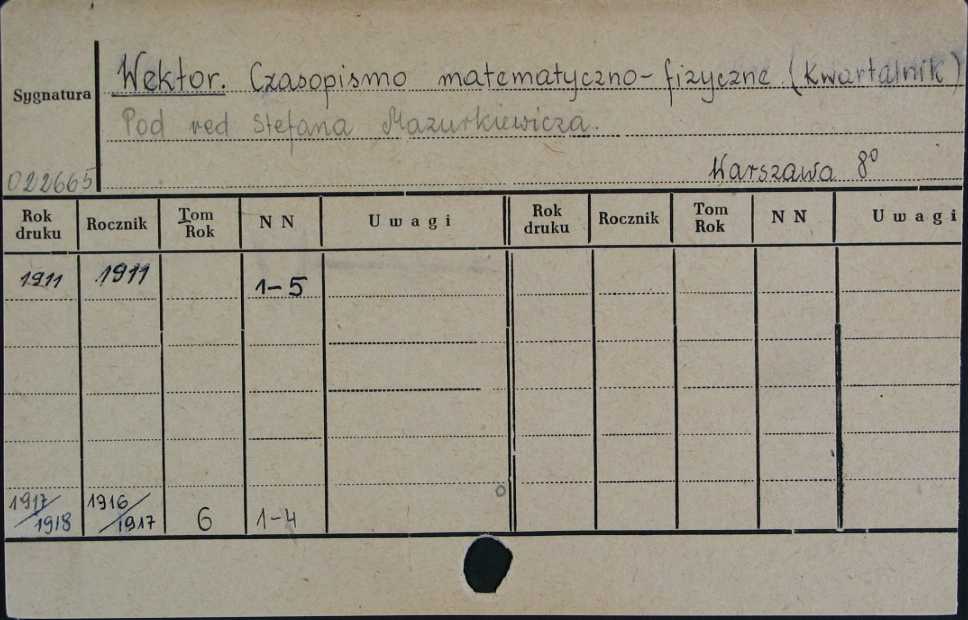 Wektor. Czasopismo matematyczno-fizyczne (Kwartalnik)
Sygnatura
Pod red Stefana Mazurkiewicza.
022665
Warszawa 8⁰
Rok druku Rocznik Tom Rok N N Uwagi Rok druku Rocznik Tom Rok N N Uwagi
1911 1911 1-5
1917/1918 1916/1917 6 1-4